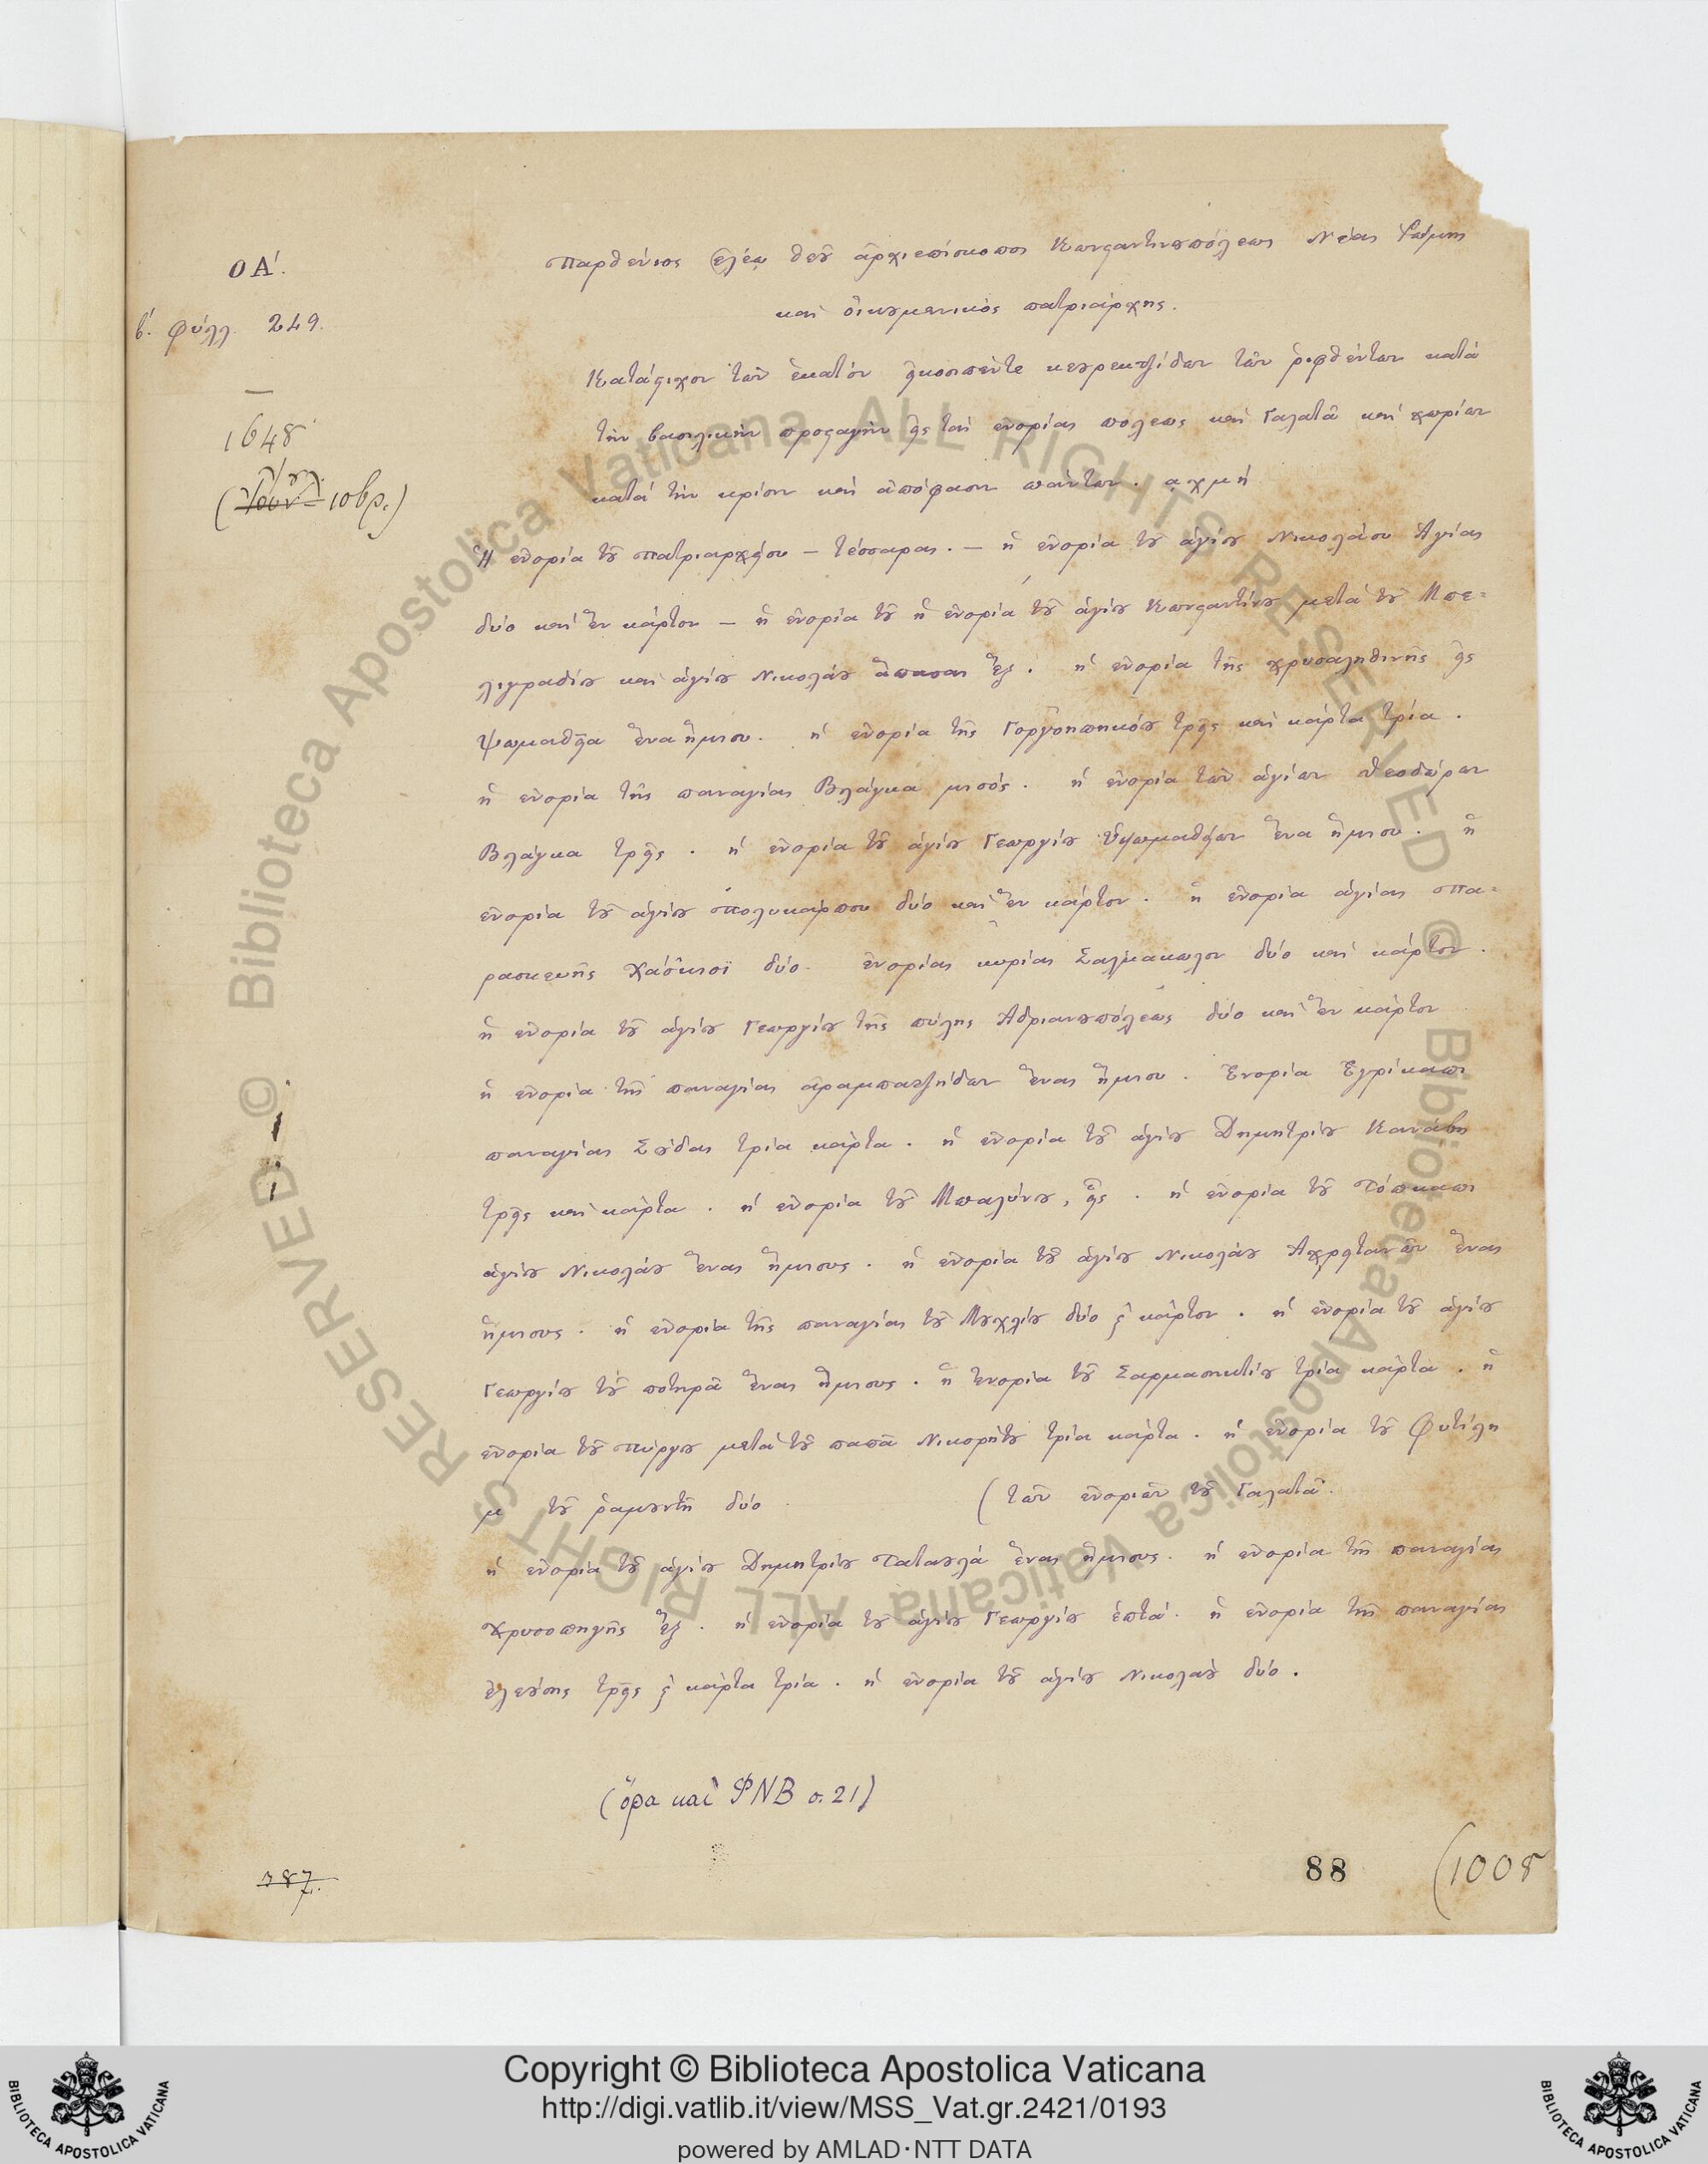 ΟΑ΄.
β΄. φύλλ. 249.
1648
Ἰουλ.
(Ἰουν 10βρ.)
Παρθένιος ἐλέῳ θεοῦ ἀρχιεπίσκοπος Κωνσταντινουπόλεως Νέας Ῥώμης
καὶ οἰκουμενικὸς πατριάρχης.
Κατάστιχον τῶν ἑκατόν εἰκοσιπέντε κουρεκτζίδων τῶν ῥιφθέντων κατά
τὴν βασιλικὴν προσταγὴν εἰς ταῖς ἐνορίαις πόλεως καὶ Γαλατᾶ καὶ χωρίων
κατά τὴν κρίσιν καὶ ἀπόφασιν πάντων. αχμή
Ἡ ἐνορία τοῦ Πατριαρχείου – τέσσαρας. – ἡ ἐνορία τοῦ ἁγίου Νικολάου Ἁγίας
δύο καὶ ἕν κάρτον – ἡ ἐνορία τοῦ ἡ ἐνορία τοῦ ἁγίου Κωνσταντίνου μετά τοῦ Μπε=
λιγραδίου καὶ ἁγίου Νικολάου ἅπασαι ἕξ. ἡ ἐνορία τῆς χρυσαληθινῆς εἰς
Ψωμαθεῖα ἕνα ἥμισυ. ἡ ἐνορία τῆς Γοργοηπηκόου τρεῖς καὶ κάρτα τρία.
ἡ ἐνορία τῆς παναγίας Βλάγκα μισός. ἡ ἐνορία τῶν ἁγίων Θεοδώρων
Βλάγκα τρεῖς. ἡ ἐνορία τοῦ ἁγίου Γεωργίου Ὑψωμαθείων ἕνα ἥμισυ. ἡ
ἐνορία τοῦ ἁγίου Πολυκάρπου δύο καὶ ἕν κάρτον. ἡ ἐνορία ἁγίας Πα=
ρασκευῆς Χάσκιοϊ δύο. ἐνορίας κυρίας Σαλμακωλον δύο καὶ κάρτον.
ἡ ἐνορία τοῦ ἁγίου Γεωργίου τῆς πύλης Ἀδριανουπόλεως δύο καὶ ἕν κάρτον
ἡ ἐνορία τῆς παναγίας ἀραμπατζήδων ἕνας ἥμισυ. Ἐνορία Ἐγρίκαπι
παναγίας Σούδας τρία κάρτα. ἡ ἐνορία τοῦ ἁγίου Δημητρίου Κανάβη
τρεῖς καὶ κάρτα. ἡ ἐνορία τοῦ Μπαλίνου, εἷς. ἡ ἐνορία τοῦ Τόπκαπι
ἁγίου Νικολάου ἕνας ἥμισυς. ἡ ἐνορία τοῦ ἁγίου Νικολάου Ἀχρειτανῶν ἕνας
ἥμισυς. ἡ ἐνορία τῆς παναγίας τοῦ Μουχλίου δύο ϗ κάρτον. ἡ ἐνορία τοῦ ἁγίου
Γεωργίου τοῦ ποτηρᾶ ἕνας ἥμισυς. ἡ ἐνορία τοῦ Σαρμασηκτίου τρία κάρτα. ἡ
ἐνορία τοῦ Πύργου μετά τοῦ παπᾶ Νικορήτου τρία κάρτα. ἡ ἐνορία τοῦ Φυτίλη
μ τοῦ ῥαμουντῆ δύο. (τῶν ἐνοριῶν τοῦ Γαλατᾶ.
ἡ ἐνορία τοῦ ἁγίου Δημητρίου Ταταουλά ἕνας ἥμισυς. ἡ ἐνορία τῆς παναγίας
Χρυσοπηγῆς ἕξ. ἡ ἐνορία τοῦ ἁγίου Γεωργίου ἑπτά. ἡ ἐνορία τῆς παναγίας
ἐλεούσης τρεῖς ϗ κάρτα τρία. ἡ ἐνορία τοῦ ἁγίου Νικολάου δύο.
(ὅρα καὶ ΦΝΒ σ. 21)
787.
88
(1008
Biblioteca Apostolica Vaticana ALL RIGHTS RESERVED ©
Biblioteca Apostolica Vaticana ALL RIGHTS RESERVED ©
Copyright © Biblioteca Apostolica Vaticana
http://digi.vatlib.it/view/MSS_Vat.gr.2421/0193
powered by AMLAD·NTT DATA
BIBLIOTECA APOSTOLICA VATICANA
BIBLIOTECA APOSTOLICA VATICANA